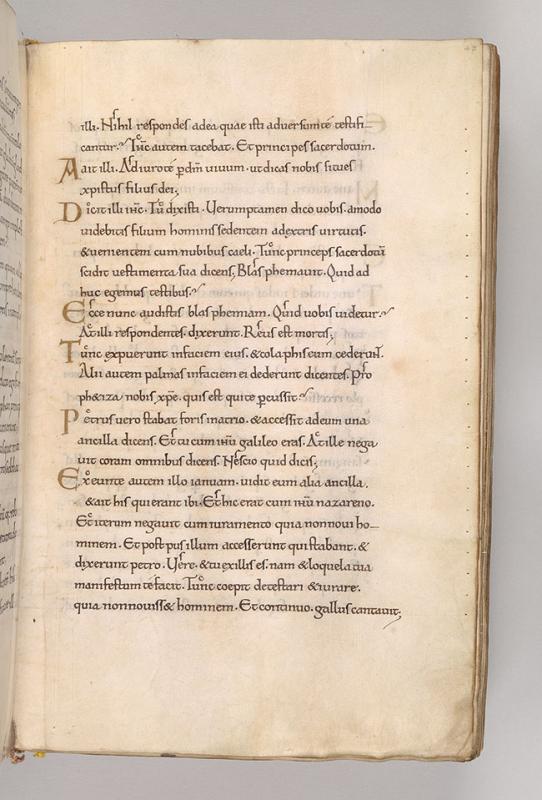 illi. Nihil respondes adea quae isti adversumte testifi
cantur. Iħc autem tacebat. Et principes sacerdotum.
Aait illi. Adiurote p dm̄ uiuum. utdicas nobis situes
xpistus filius dei.
Dicit illi ihc. Tu dixisti. Uerumptamen dico uobis. amodo
uidebitis filium hominis sedentem adextris uirtutis.
&uenientem cum nubibus caeli. Tunc princeps sacerdotū
scidit uestimenta sua dicens, Blasphemauit. Quid ad
huc egemus testibus.
Ecce nunc audistis blasphemiam. Quid uobis uidetur.
At illi respondentes. dixerunt. Reus est mortis;
Tunc expuerunt infaciem eius. &colaphiseum cederunt.
Alii autem palmas infaciem ei dederunt dicentes. Pro
ph&iza nobis xpe. quis est qui te pcussit
Petrus uero stabat foris inatrio. &accessit adeum una
ancilla dicens. Et tu cum ihū galileo eras. At ille nega
uit coram omnibus dicens. Nescio quid dicis;
Exeunte autem illo ianuam. uidit eum alia ancilla.
&ait his qui erant ibi. Et hic erat cum ihū nazareno.
Et iterum negauit cum iuramento quia nonnoui ho
minem. Et post pusillum accesserunt qui stabant. &
dixerunt petro. Uere. &tu exillis es. nam &loquela tua
manifestum te facit. Tunc coepit detestari &iurare.
quia nonnouiss& hominem. Et continuo. gallus cantauit;